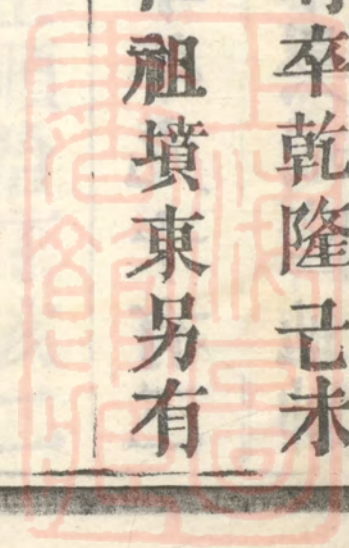 卒乾隆己未
祖墳東另有